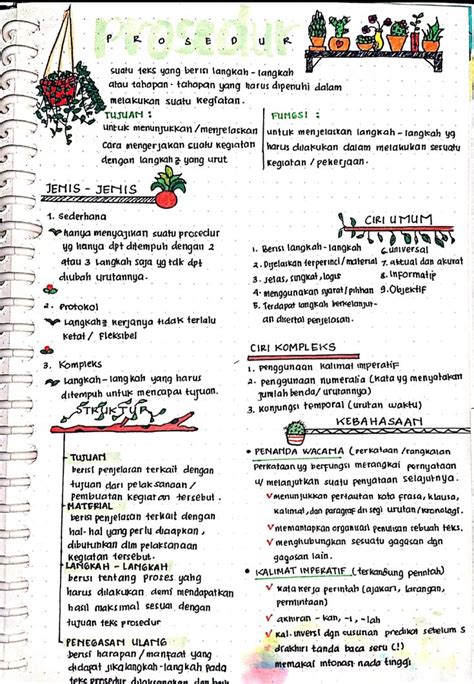 PROSEDUR
suatu teks yang berisi langkah - langkah
atau tahapan - tahapan yang harus dipenuhi dalam
melakukan suatu kegiatan.
TUJUAN :
untuk menunjukkan / menjelaskan
cara mengerjakan suatu kegiatan
dengan langkah2 yang urut
FUNGSI :
untuk menjelaskan langkah - langkah yg
harus dilakukan dalam melakukan sesuatu
kegiatan / pekerjaan.
JENIS - JENIS
1. sederhana
hanya menyajikan suatu prosedur
yg hanya dpt ditempuh dengan 2
atau 3 langkah saja yg tdk dpt
diubah urutannya.
2. Protokol
Langkah2 kerjanya tidak terlalu
ketat / fleksibel
3. Kompleks
Langkah - langkah yang harus
ditempuh untuk mencapai tujuan.
STRUKTUR
TUJUAN
berisi penjelasan terkait dengan
tujuan dari pelaksanaan /
pembuatan kegiatan tersebut.
MATERIAL
berisi penjelasan terkait dengan
hal - hal yang perlu disiapkan,
dibutuhkan dlm pelaksanaan
kegiatan tersebut.
LANGKAH - LANGKAH
berisi tentang proses yang
harus dilakukan demi mendapatkan
hasil maksimal sesuai dengan
tujuan teks prosedur
PENEGASAN ULANG
berisi harapan / manfaat yang
didapat jika langkah - langkah pada
teks prosedur dilaksanakan dan baik
CIRI UMUM
1. Berisi langkah - langkah
2. Dijelaskan terperinci / material
3. Jelas, singkat, logis
4. menggunakan syarat / pilihan
5. Terdapat langkah berkelanjut-
an disertai penjelasan.
6. universal
7. aktual dan akurat
8. Informatif
9. Objektif
CIRI KOMPLEKS
1. Penggunaan kalimat imperatif
2. penggunaan numeralia (kata yg menyatakan
jumlah benda / urutannya)
3. Konjungsi temporal (urutan waktu)
KEBAHASAAN
PENANDA WACANA (perkataan / rangkaian
perkataan yg berfungsi merangkai pernyataan
u/ melanjutkan suatu penyataan selajutnya.
menunjukkan pertautan kata frasa, klausa,
kalimat, dan paragraf dri segi urutan / kronologi.
memantapkan organisasi penulisan sebuah teks.
menghubungkan sesuatu gagasan dgn
gagasan lain.
KALIMAT IMPERATIF (terkandung perintah)
kata kerja perintah (ajakan, larangan,
permintaan)
akhiran - kan, -i, -lah
kal. inversi dgn susunan predikat sebelum S
diakhiri tanda baca seru (!)
memakai intonasi nada tinggi